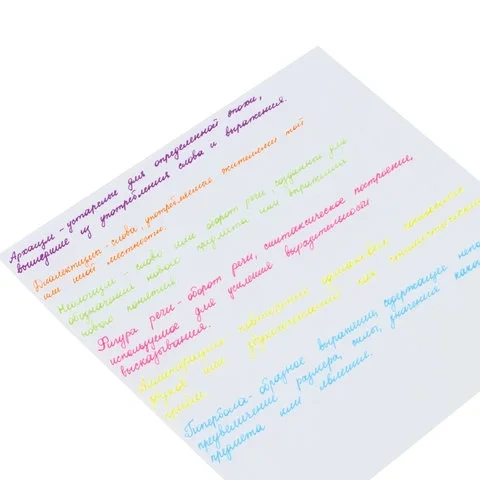 Архаизм - устарелые для определенной эпохи,
вышедшие из употребления слова и выражения.
Диалектизм - слова, употребляемые жителями той
или иной местности.
Неологизм - слово или оборот речи, созданный для
обозначения нового предмета или выражения
нового понятия.
Фигура речи - оборот речи, синтаксическое построение,
используемое для усиления выразительности
высказывания.
Аллитерация - повторение одинаковых
звуков или
Гипербола - образное выражение, содержащее непо
преувеличение размера, силы, значения како
предмета или явления.